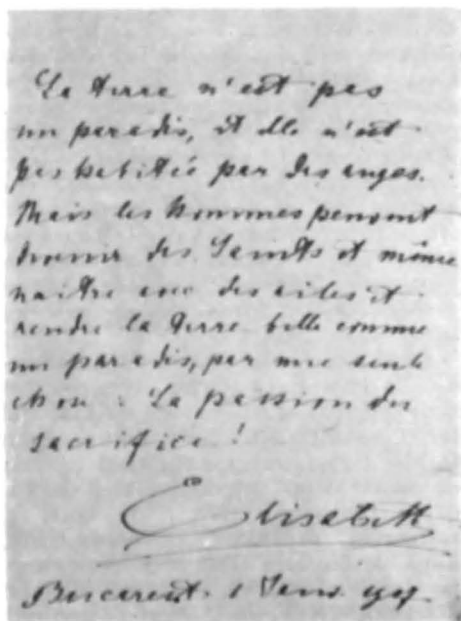 La terre n'est pas
un paradis, et elle n'est
pas habitée par des anges.
Mais les hommes peuvent
devenir des Saints et même
naître avec des ailes et
rendre la terre belle comme
un paradis, par une seule
chose : La passion du
sacrifice !
Elisabeth
Bucarest. 1